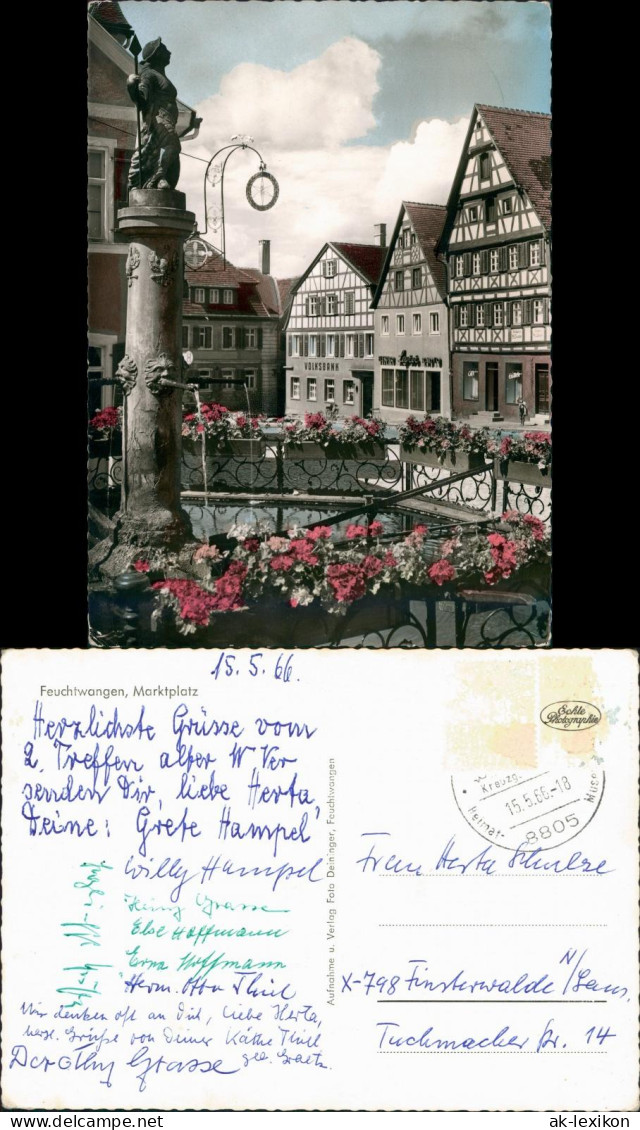 VOLKSBANK
15.5.66.
Feuchtwangen, Marktplatz
Herzlichste Grüsse vom
2. Treffen alter W Ver
senden Dir, liebe Herta,
Deine: Grete Hampel
Willy Hampel
Heinz Grasse
Else Hoffmann
Erna Hoffmann
Herm. Otto Thiel
Wir denken oft an Dich, liebe Herta,
herzl. Grüße von Deiner Käthe Thiel
geb. Graetz.
Dorothy Grasse
Aufnahme u. Verlag Foto Deininger, Feuchtwangen
Echte
Photographie
Kreuzg.
15.5.66.-18
Heimat-
Muse
8805
Frau Herta Schulze
X-798 Finsterwalde N/Laus.
Tuchmacher Str. 14
www.delcampe.net
ak-lexikon